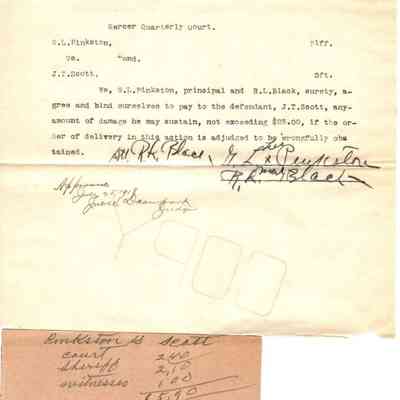 Mercer Quarterly court.
G.L.Pinkston, Plff.
vs. "ond.
J.T.Scott. Dft.
We, G.L.Pinkston, principal and R.L.Black, surety, a-
gree and bind ourselves to pay to the defendant, J.T.Scott, any-
amount of damage he may sustain, not exceeding $25.00, if the or-
der of delivery in this action is adjudged to be wrongfully obs
tained.
Att. R.L. Black G. L. his x Pinkston
R. L. mark Black
Approved
Judge
Pinkston vs Scott
court 2.40
sheriff 2.10
witnesses 1.00